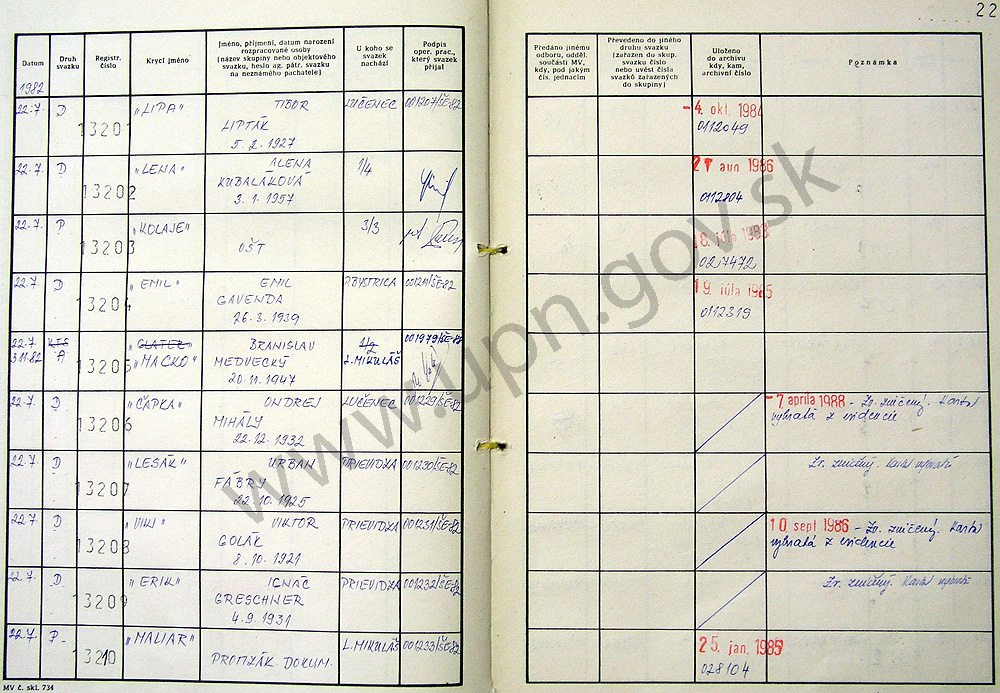 22
Datum
Druh
svazku
Registr.
číslo
Krycí jméno
Jméno, příjmení, datum narození
rozpracované osoby
(název skupiny nebo objektového
svazku, heslo ag. pátr. svazku
na neznámého pachatele)
U koho se
svazek
nachází
Podpis
oper. prac.,
který svazek
přijal
Předáno jinému
odboru, odděl.
součásti MV,
kdy, pod jakým
čís. jednacím
Převedeno do jiného
druhu svazku
(zařazen do skup.
svazku číslo
nebo uvést čísla
svazků zařazených
do skupiny)
Uloženo
do archivu
kdy, kam,
archivní číslo
Poznámka
1982
22.7. D 13201 "LIPA" TIBOR LUČENEC 001207/ŠE-82 - 4. okt. 1984
LIPTÁK 0112049
5. 2. 1927
22.7. D 13202 "LENA" ALENA 1/4 1986
KUBALÁKOVÁ 0112804
3. 1. 1957
22.7. P 13203 "KOLAJE" 3/3 18. júla
OŠT 027472
22.7. D 13204 "EMIL" EMIL P.BYSTRICA 001211/ŠE-82 19. júla 1985
GAVENDA 0112319
26. 3. 1939
22.7. KTS 13205 BRANISLAV 1/2 001979/ŠE-82
3.11.82 A "MACKO" MEDVECKÝ L.MIKULÁŠ
20. 11. 1947
22.7. D 13206 "ČAPKA" ONDREJ LUČENEC 001229/ŠE-82 - 7. apríla 1988 - Zv. zničený. Karta
MIHÁLY vybratá z evidencie
22. 12. 1932
22.7. D 13207 "LESÁK" URBAN PRIEVIDZA 001230/ŠE-82 Zv. zničený.
FÁBRY
22. 10. 1925
22.7. D 13208 "VIKI" VIKTOR PRIEVIDZA 001231/ŠE-82 10 sept 1986 - Zv. zničený. Karta
GOLÁK vybratá z evidencie
8. 10. 1921
22.7. D 13209 "ERIK" IGNÁC PRIEVIDZA 001232/ŠE-82 Zv. zničený.
GRESCHNER
4. 9. 1931
22.7. P 13210 "MALIAR" L.MIKULÁŠ 001233/ŠE-82 25. jan. 1985
DOKUM. 028104
MV č. skl. 734
www.upn.gov.sk